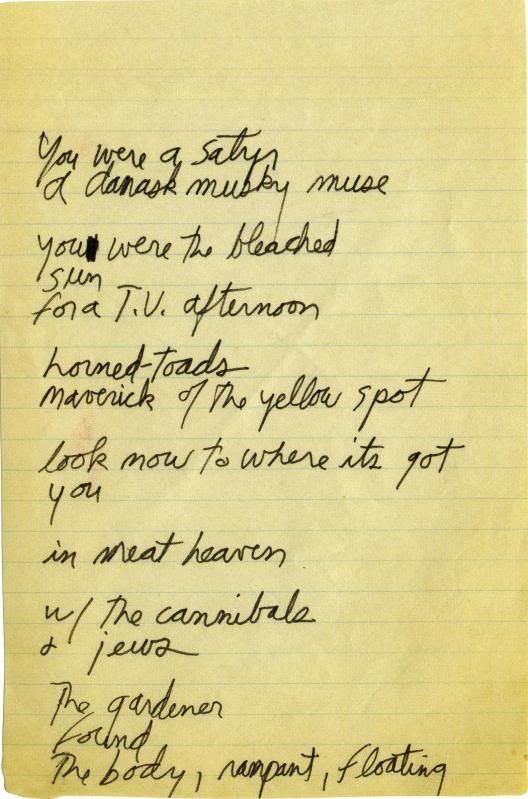 You were a satyr
& danask musky muse
you were the bleached
sun
for a T.V. afternoon
horned-toads
maverick of the yellow spot
look now to where its got
you
in meat heaven
w/ the cannibals
& jews
The gardener
Found
The body, rampant, floating